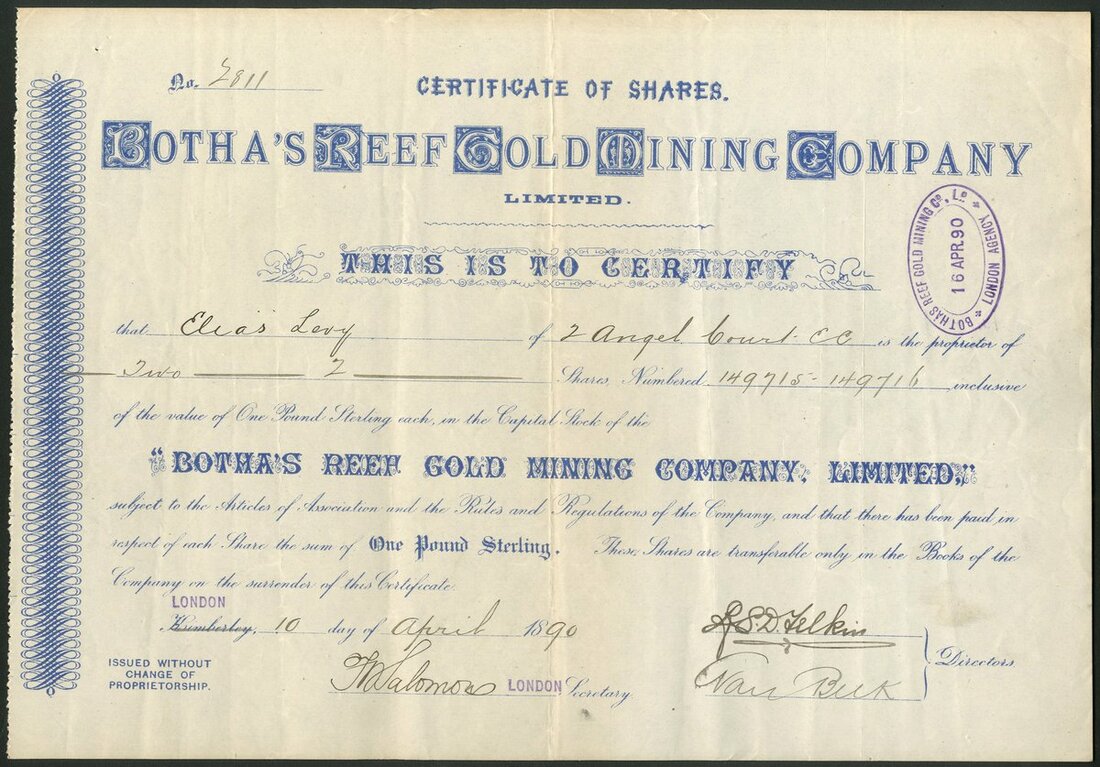 No. 2811
CERTIFICATE OF SHARES.
BOTHA'S REEF GOLD MINING COMPANY
LIMITED.
BOTHAS REEF GOLD MINING Co., Ld.
16 APR. 90
LONDON AGENCY
THIS IS TO CERTIFY
that Elias Levy of 2 Angel Court EC is the proprietor of
Two 2 Shares, Numbered 149715 - 149716 inclusive
of the value of One Pound Sterling each, in the Capital Stock of the
"BOTHA'S REEF GOLD MINING COMPANY, LIMITED,"
subject to the Articles of Association and the Rules and Regulations of the Company, and that there has been paid in
respect of each Share the sum of One Pound Sterling. These Shares are transferable only in the Books of the
Company on the surrender of this Certificate.
LONDON
Kimberley, 10 day of April 1890
S.D. Felkin
Directors
ISSUED WITHOUT
CHANGE OF
PROPRIETORSHIP.
Salomon LONDON Secretary.
Van Beek